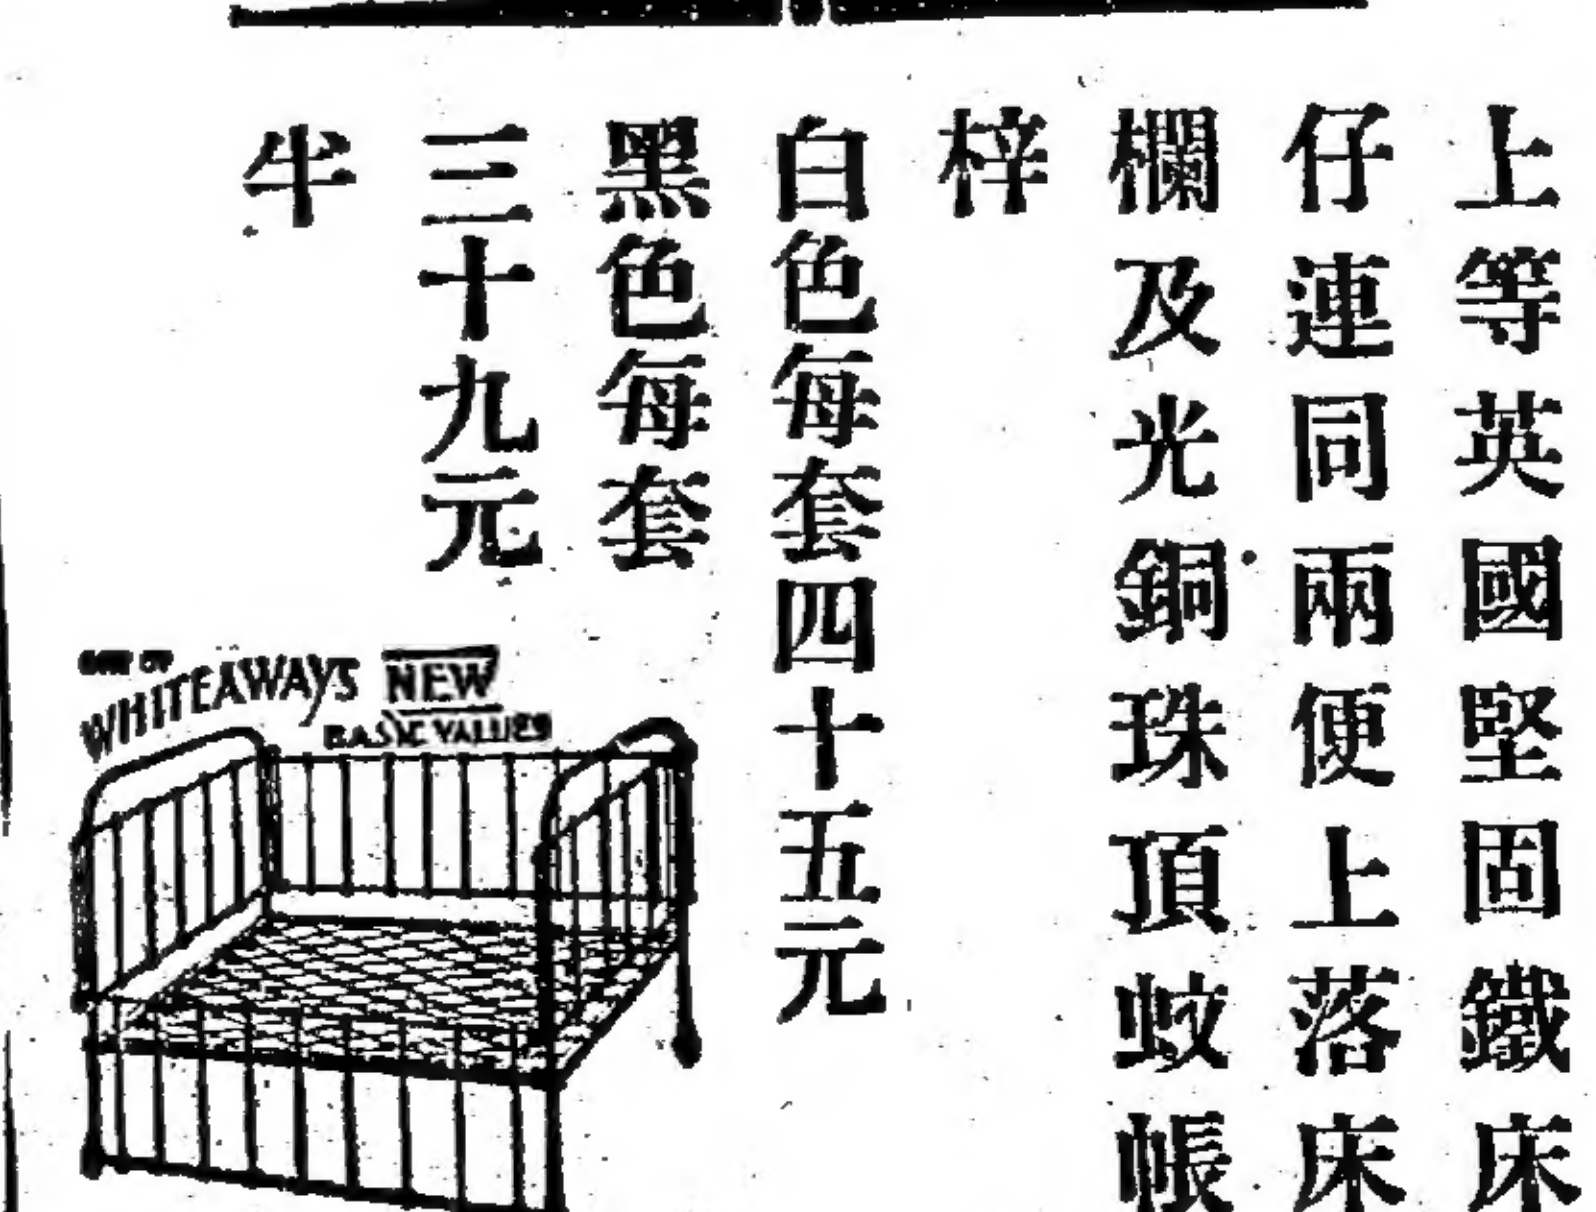 上等英國堅固鐵床
仔連同兩便上落床
欄及光銅珠頂蚊帳
梓
白色每套四十五元
黑色每套
三十九元
半
ONE OF
WHITEAWAYS NEW
BASIC VALUES